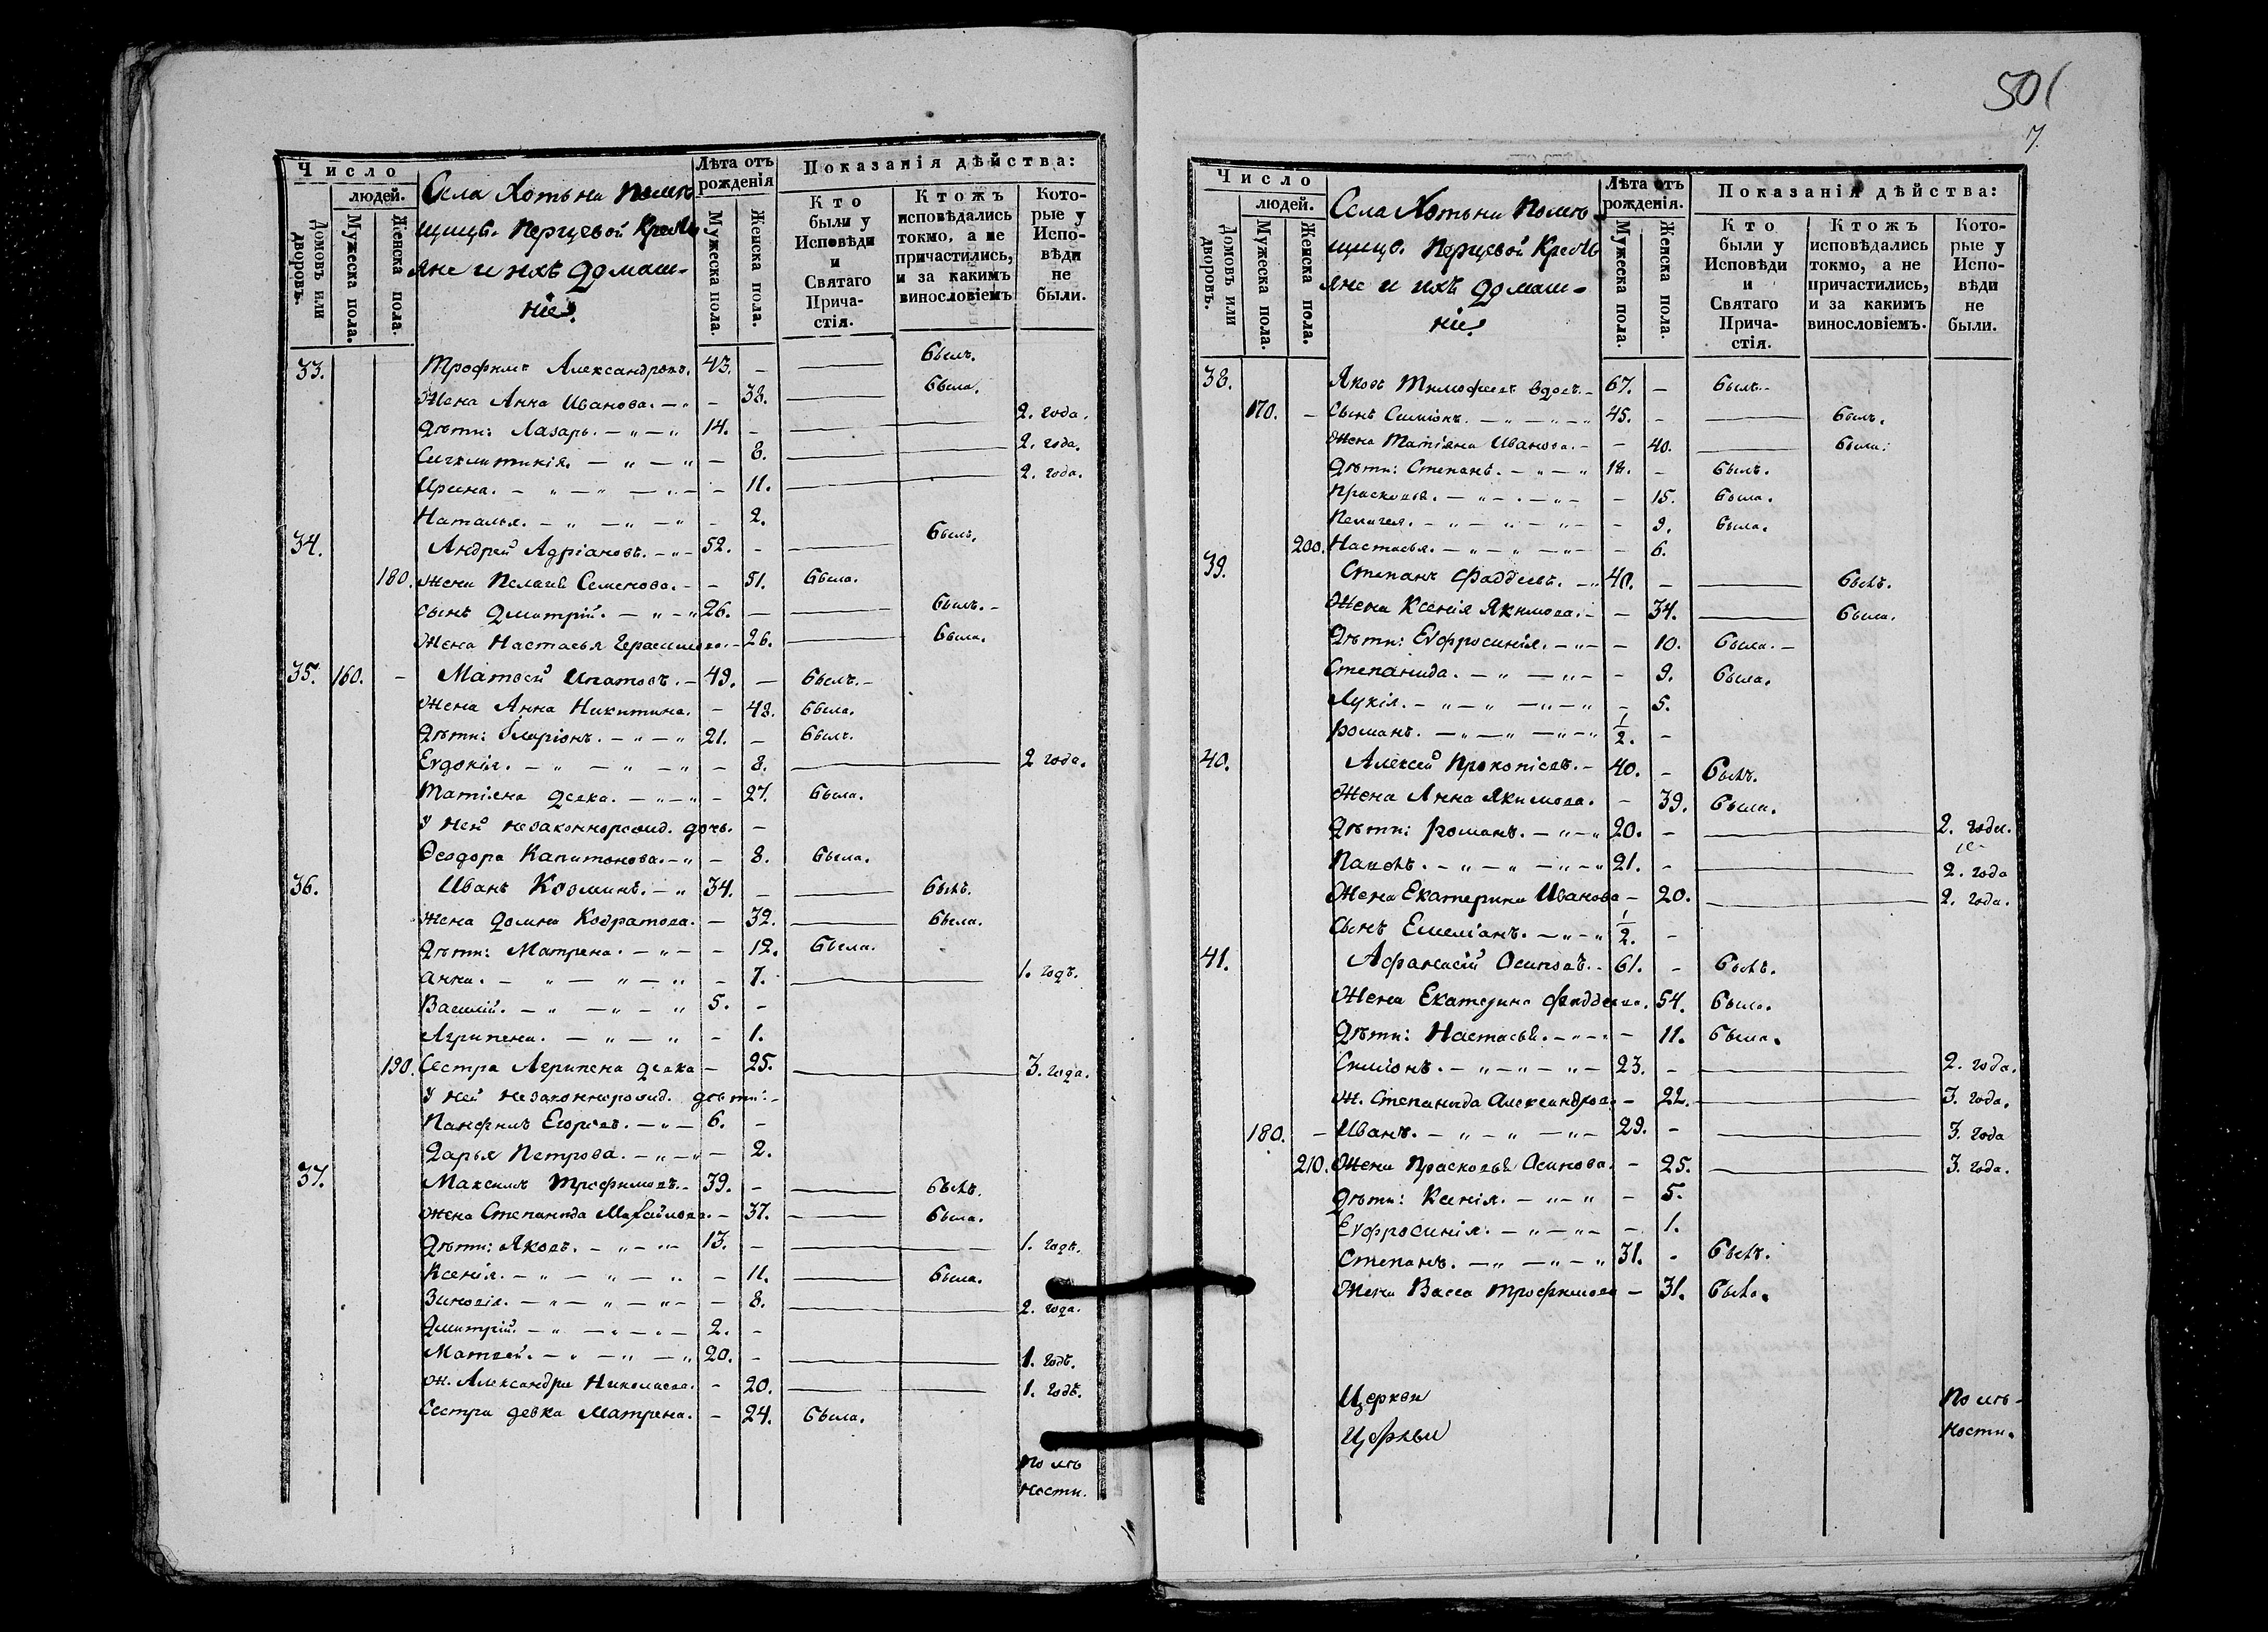 Число
людей.
Домовъ или дворовъ.
Мужеска пола.
Женска пола.
Села Хотьни Помѣ-
щицы. Перцевой Крестья
яне и ихъ домаш-
ніе.
Лѣта отъ рожденія
Мужеска пола.
Женска пола.
Показанія дѣйства:
Кто были у Исповѣди и Святаго Прича-стія.
Ктожъ исповѣдались токмо, а не причастились, и за какимъ винословіемъ
Кото-рые у Испо-вѣди не были.
33. Трофимъ Александровъ. 43. - былъ.
Жена Анна Иванова. - 38. была.
Дѣти: Лазарь. 14. - 2. года.
Сигклитикія. - 8. 2. года.
Ирина. - 11. 2. года.
Наталья. - 2.
34. Андрей Адріановъ. 52. - былъ.
180. жена Пелагея Семенова. - 51. была.
сынъ Дмитрій. 26. - былъ.
Жена Настасья Герасимова. - 26. была.
35. 160. - Матвей Игатовъ. 49. - былъ.
Жена Анна Никитина. - 48. была.
Дѣти: Иларіонъ. 21. - былъ.
Еѵдокія. - 8. 2 года.
Татіяна девка. - 27. была.
У ней незаконнорожд. дочь. -
Ѳеодора Капитонова. - 8. была.
36. Иванъ Козминъ. 34. - былъ.
жена Домна Кодратова. - 32. была.
Дѣти: Матрена. - 12. была.
Анна. - 7. 1. годъ.
Василій. 5. -
Агрипена. - 1.
190. Сестра Агрипена девка - 25. 3. года.
У ней незаконнорожд. дѣти: -
Панфилъ Егоровъ. 6. -
Дарья Петрова. - 2.
37. Максимъ Трофимовъ. 39. - былъ.
жена Степанида Михайлова. - 37. была.
Дѣти: Яковъ. 13. - 1. годъ.
Ксенія. - 11. была.
Зиновія. - 8. 2. года.
Дмитрій. 2. -
Матвей. 20. - 1. годъ.
ж. Александра Николаева. - 20. 1. годъ.
Сестра девка Матрена. - 24. была.
По мѣ
ности.
501
7.
Число
людей.
Домовъ или дворовъ.
Мужеска пола.
Женска пола.
Села Хотьни Помѣ-
щицы. Перцевой Кресть
яне и ихъ домаш-
ніе.
Лѣта отъ рожденія.
Мужеска пола.
Женска пола.
Показанія дѣйства:
Кто были у Исповѣди и Святаго Прича-стія.
Ктожъ исповѣдались токмо, а не причастились, и за какимъ винословіемъ.
Кото-рые у Испо-вѣди не были.
38. Яковъ Тимофеевъ вдовъ. 67. - былъ.
170. - Сынъ Симіонъ. 45. - былъ.
Жена Татіяна Иванова. - 40. была.
Дѣти: Степанъ. 18. - былъ.
Прасковья. - 15. была.
Пелагея. - 9. была.
200. Настасья. - 6.
39. Степанъ Фаддеевъ. 40. - былъ.
Жена Ксенія Якимова. - 34. была.
Дѣти: Еѵфросинія. - 10. была.
Степанида. - 9. была.
Лукія. - 5.
Романъ. 1/2. -
40. Алексей Прокопіевъ. 40. - былъ.
Жена Анна Якимова. - 39. была.
Дѣти: Романъ. 20. - 2. года.
21. - 2. года
Жена Екатерина Иванова - 20. 2. года.
Сынъ Емеліанъ. 1/2. -
41. Афанасій Осиповъ. 61. - былъ.
Жена Екатерина Фаддеева. 54. была.
Дѣти: Настасья. - 11. была.
Симіонъ. 23. - 2. года.
ж. Степанида Александрова - 22. 3. года.
180. - Иванъ. 29. - 3. года
210. Жена Прасковья Осипова. - 25. 3. года.
Дѣти: Ксенія. - 5.
Еѵфросинія. - 1.
Степанъ. 31. - былъ.
Жена Васса Трофимова - 31. была.
Церкви
Церкви
По мѣ-
ности.